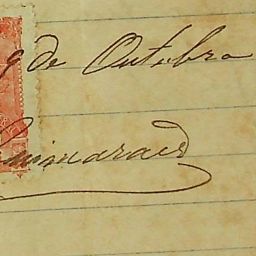 9 de Outubro
Guimaraes